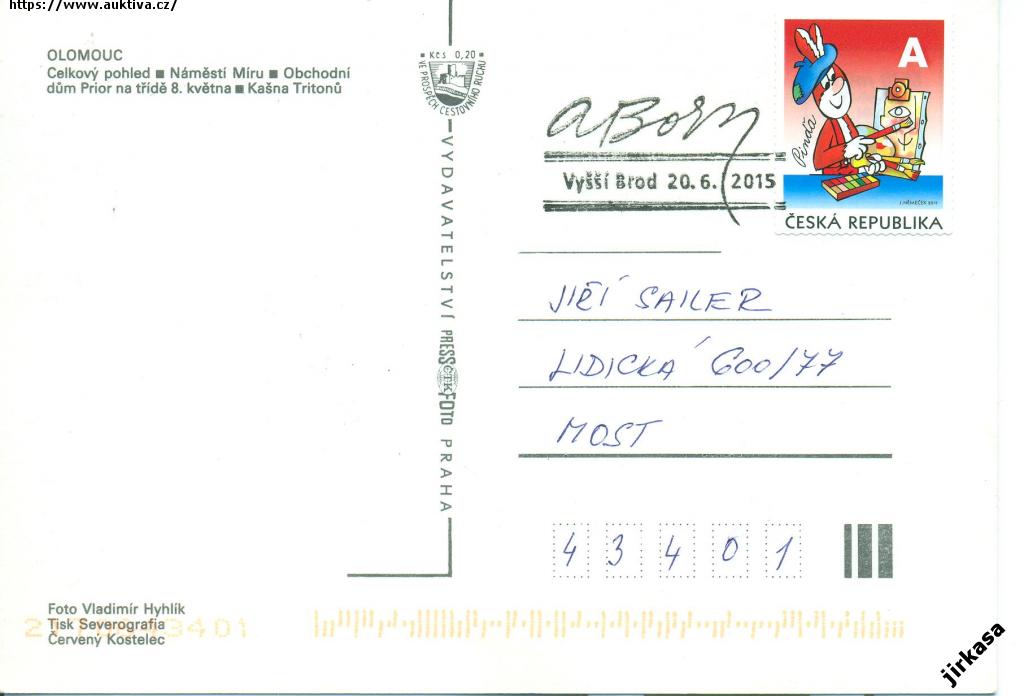 https://www.auktiva.cz/
OLOMOUC
Celkový pohled ■ Náměstí Míru ■ Obchodní
dům Prior na třídě 8. května ■ Kašna Tritonů
Kčs 0,20
VE PROSPĚCH CESTOVNÍHO RUCHU
VYDAVATELSTVÍ PRESSFOTO PRAHA
ČTK
A Born
Vyšší Brod 20.6. 2015
A
Pinďa
J. NĚMEČEK 2011
ČESKÁ REPUBLIKA
JIŘÍ SAILER
LIDICKÁ 600/77
MOST
43401
Foto Vladimír Hyhlík
Tisk Severografia
Červený Kostelec
3401
jirkasa